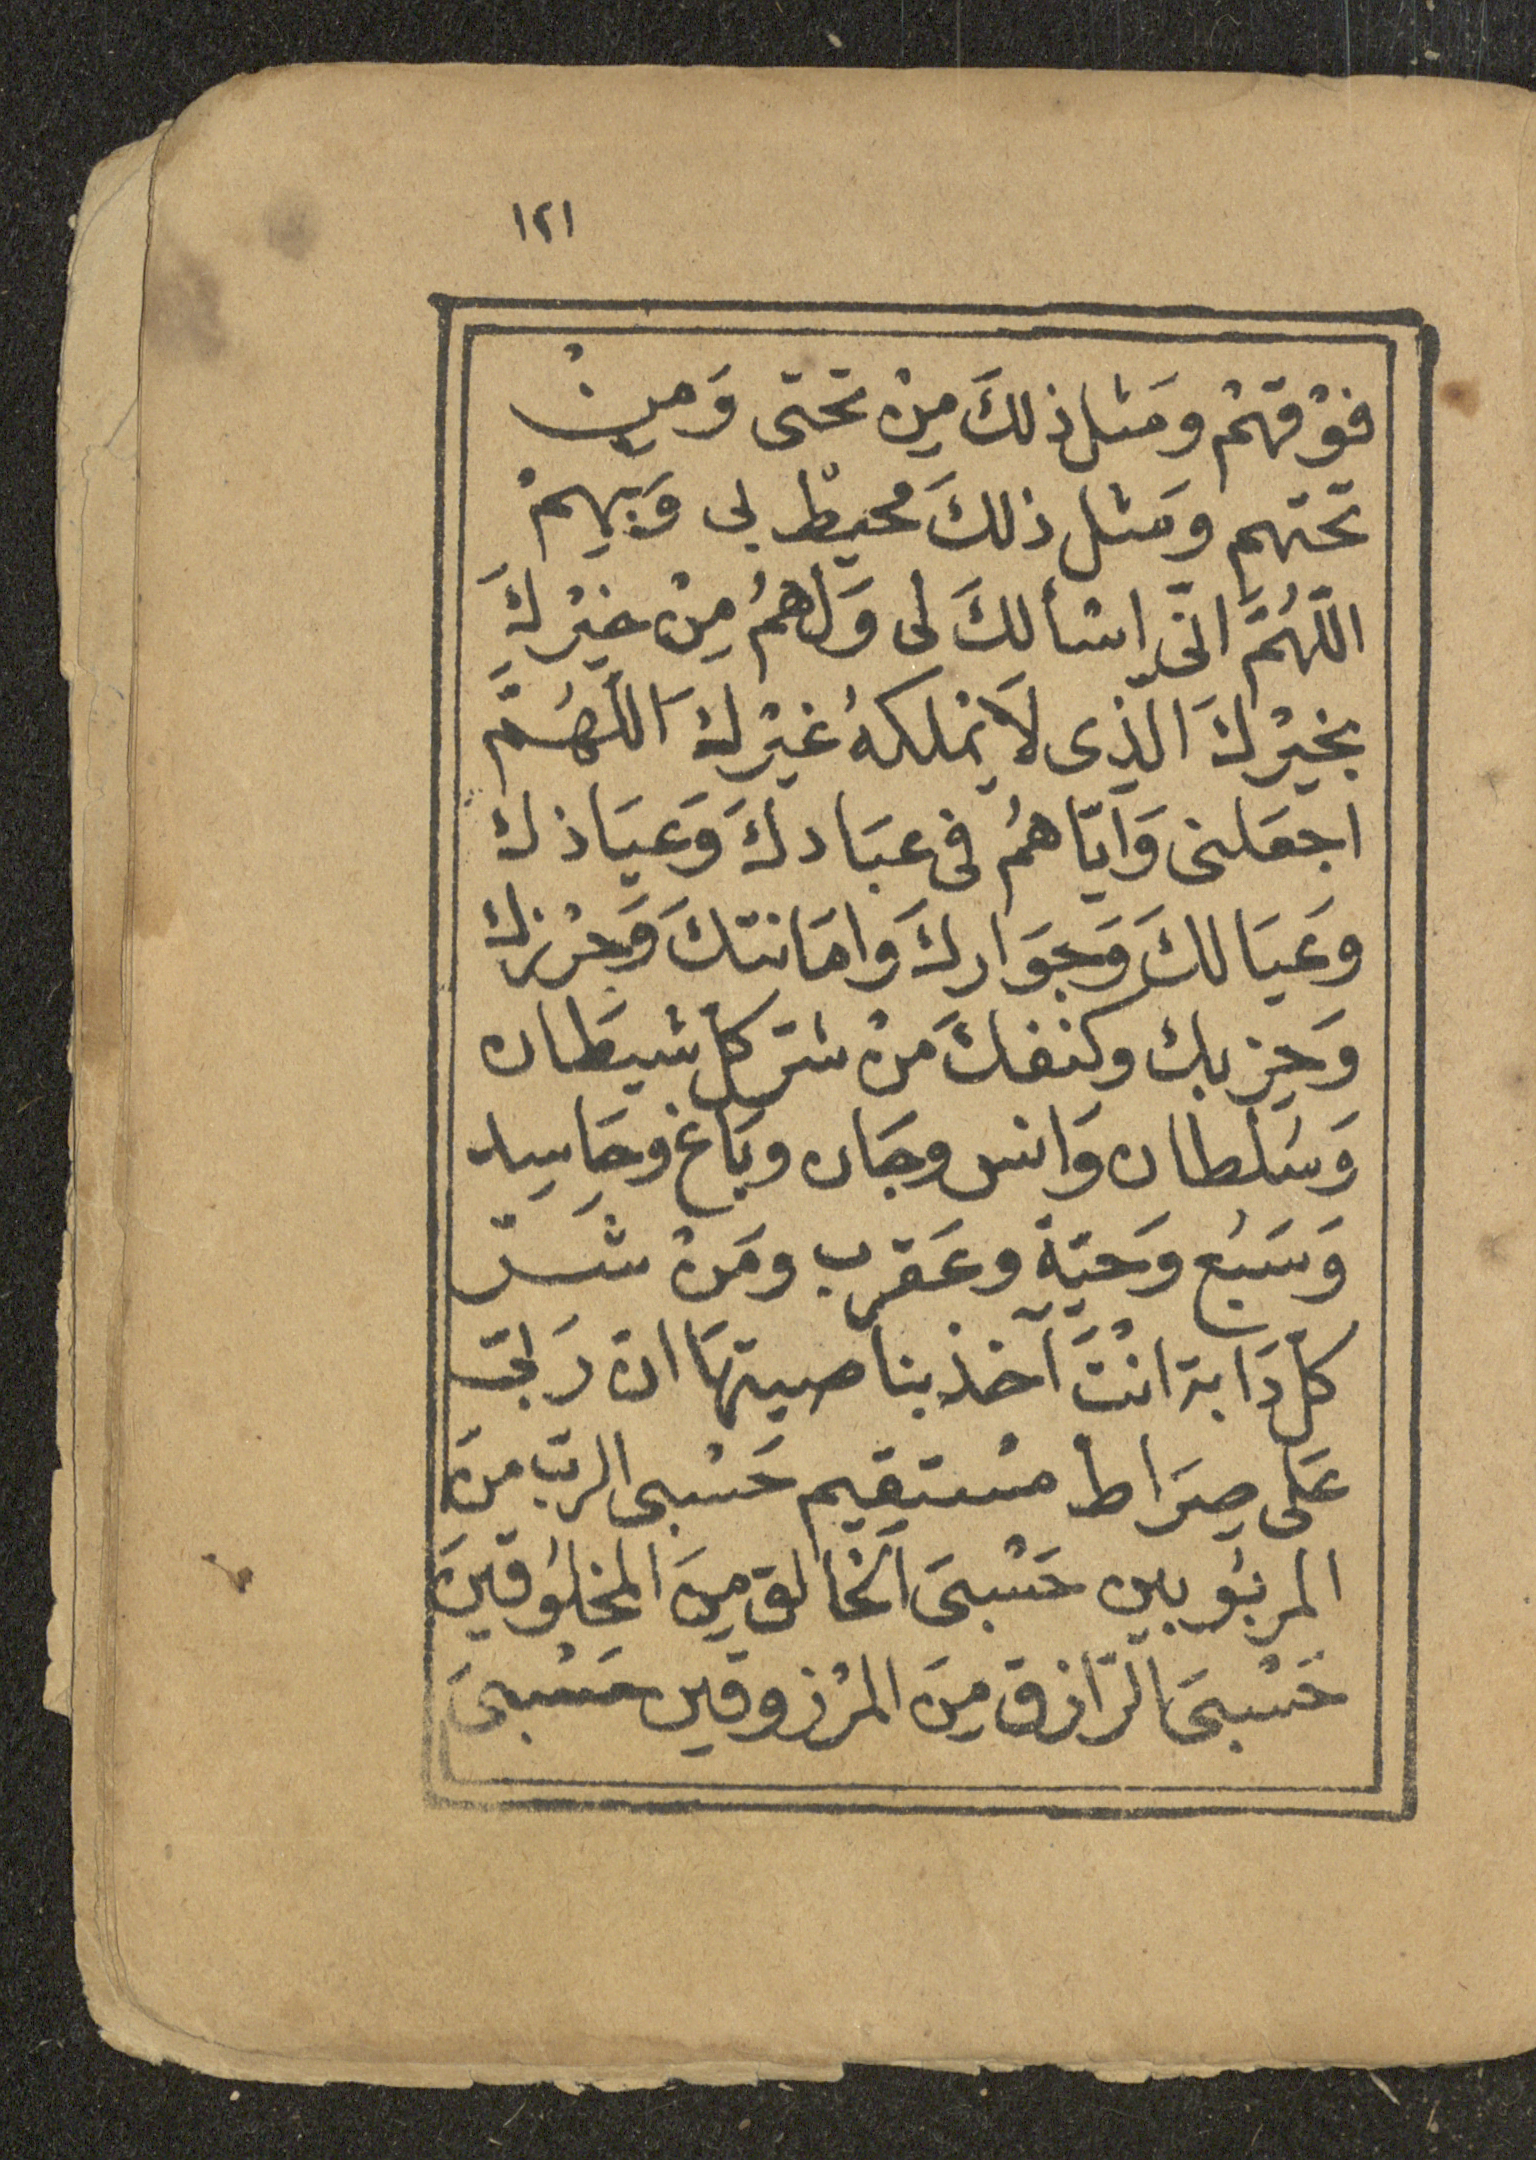 ١٢١
فوْقهْم ومَثل ذلكَ مِنْ تحتى وَمِنْ
تحتهم ومَثل ذلكَ محيطْ بى وَبِهِمْ
اللّهُمَّ انّى اسْألكَ لى وَلهمُ مِنْ خيْركَ
بخيْركَ الّذِى لَا يَمْلكهُ غيْركَ اَللّهُمَّ
اجعَلنى وَايّاهمُ فى عبَادكَ وَعيَاذك
وعَيَالكَ وَجوَاركَ وامَانتكَ وَحِرْزك
وَحِزبك وكنفكَ مِنْ شرّ كلّ شيطَان
وَسُلطان وَانس وجَان وبَاغ وحَاسِد
وَسَبُع وَحَيّةٍ وعَقرب ومَنْ شَرّ
كلّ دَابة انْتَ آخذ بناصيتهَا انّ رَبّى
عَلى صِرَاط مسْتقيم حَسْبى الربّ منَ
المربُوبين حَسْبىَ اَلْخالق مِنَ المخلُوقينَ
حَسْبىَ الرّازق مِنَ المرْزوقين حَسْبىَ